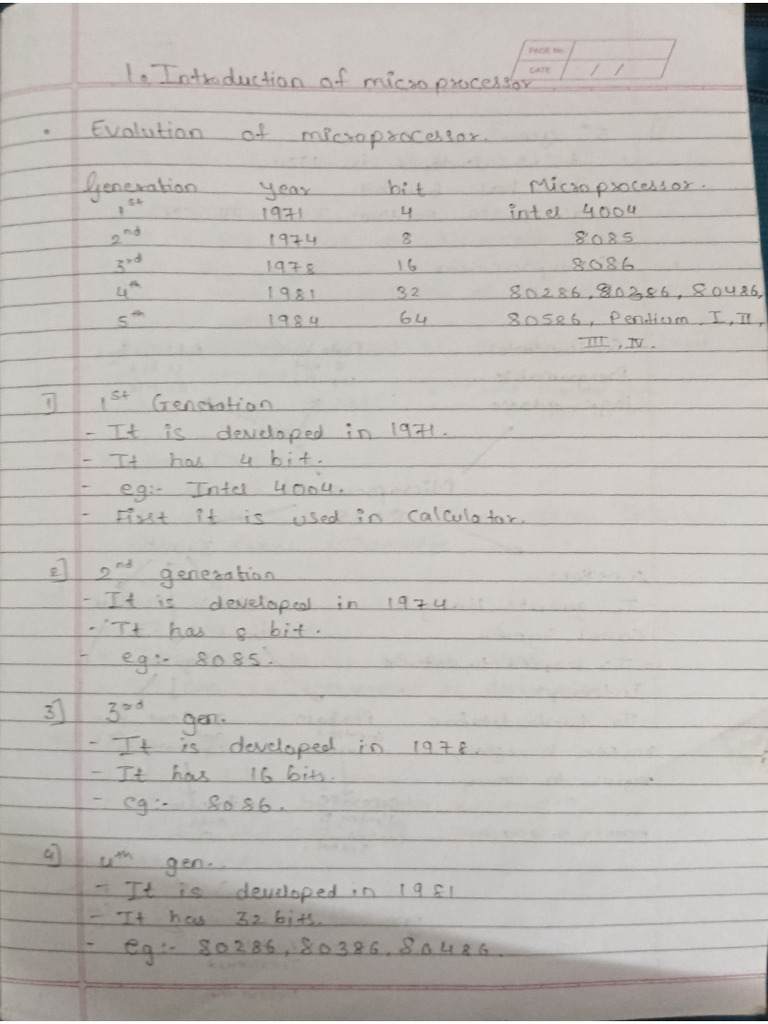 PAGE No.
DATE / /
1. Introduction of microprocessor
• Evalution of microprocessor.
Generation year bit Microprocessor.
1st 1971 4 intel 4004
2nd 1974 8 8085
3rd 1978 16 8086
4th 1981 32 80286, 80386, 80486,
5th 1984 64 80586, Pentium I, II,
III, IV.
1] 1st Generation
- It is developed in 1971.
- It has 4 bit.
- eg:- Intel 4004.
- First it is used in calculator.
2] 2nd generation
- It is developed in 1974
- It has 8 bit.
- eg:- 8085.
3] 3rd gen.
- It is developed in 1978.
- It has 16 bits.
- eg:- 8086.
4] 4th gen.
- It is developed in 1981
- It has 32 bits.
- eg:- 80286, 80386, 80486.